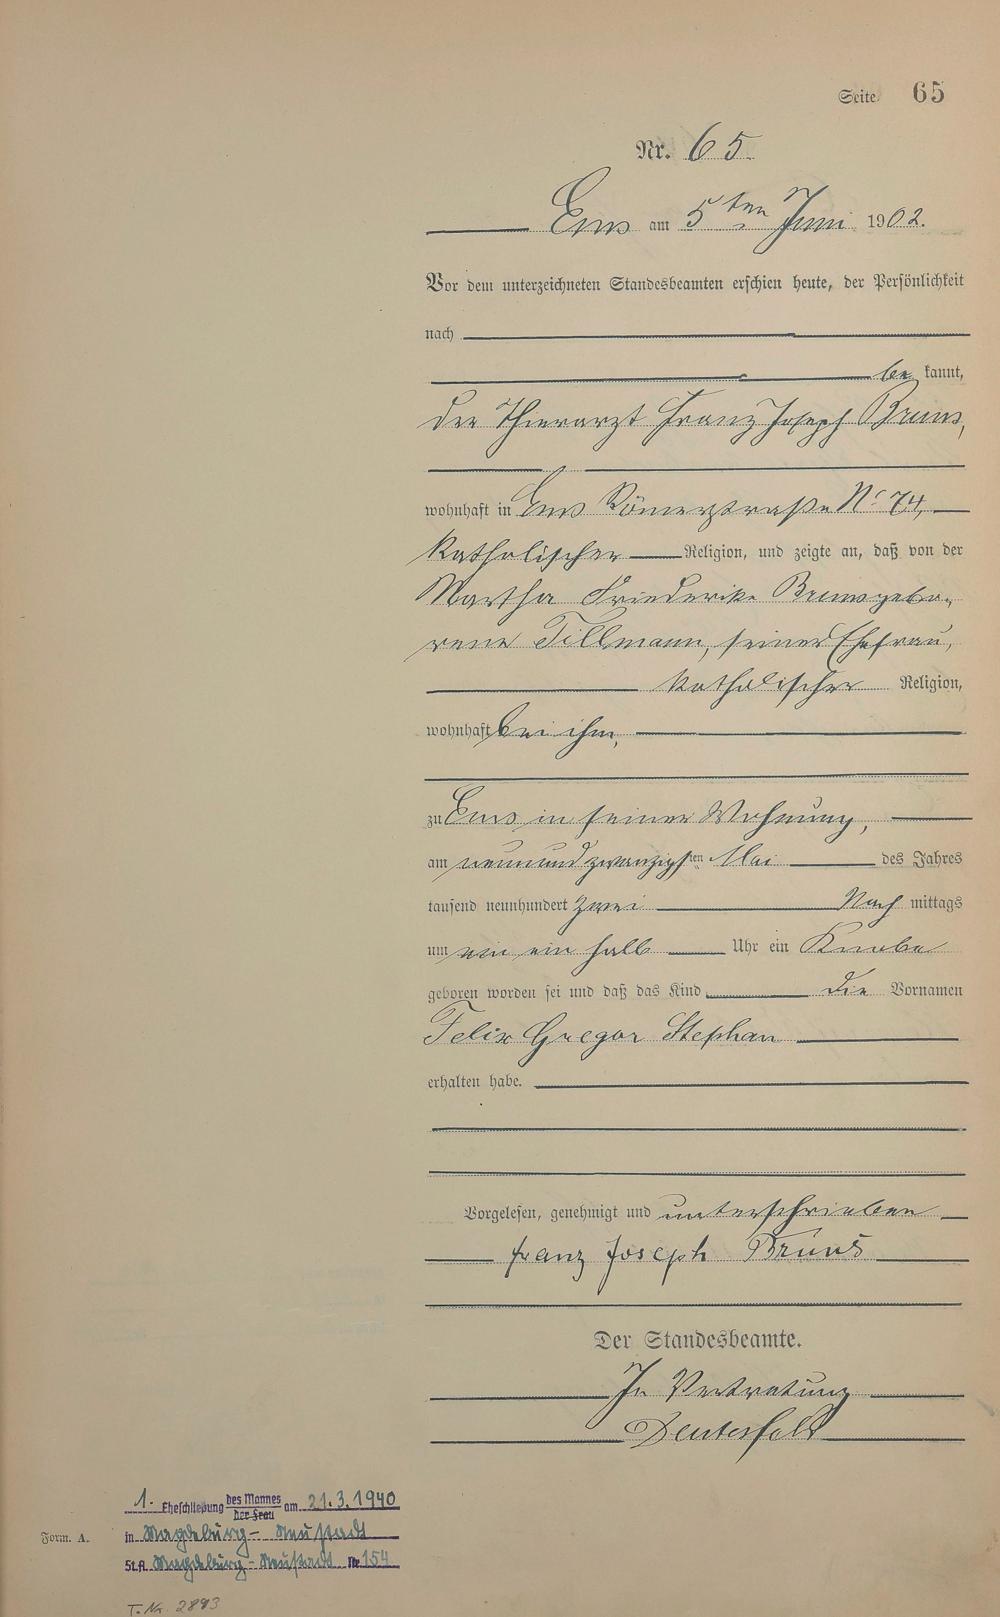 Seite 65
Nr. 65.
Ems am 5ten Juni 1902.
Vor dem unterzeichneten Standesbeamten erschien heute, der Persönlichkeit
nach
be kannt,
der Thierarzt Franz Joseph Bruns,
wohnhaft in Ems Römerstraße No 74,
katholischer Religion, und zeigte an, daß von der
Martha Friederike Bruns gebo-
rene Tillmann, seiner Ehefrau,
katholischer Religion,
wohnhaft bei ihm,
zu Ems in seiner Wohnung,
am neunundzwanzigsten Mai des Jahres
tausend neunhundert zwei Nach mittags
um ein halb Uhr ein Knabe
geboren worden sei und daß das Kind die Vornamen
Felix Gregor Stephan
erhalten habe.
Vorgelesen, genehmigt und unterschrieben
Franz Joseph Bruns
Der Standesbeamte.
In Vertretung
1. Eheschließung des Mannes der Frau am 21.3.1940
Form. A. in Magdeburg-Neustadt
St.A. Magdeburg-Neustadt Nr 154
T. Nr. 2893